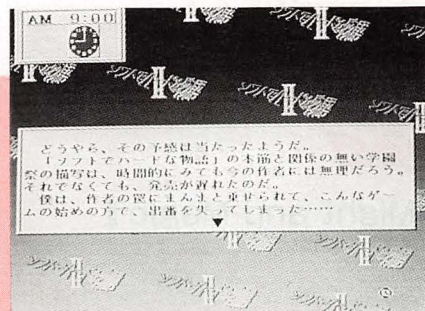 AM 9:00
どうやら、その予感は当たったようだ。
「ソフトでハードな物語」の本筋と関係の無い学園
祭の描写は、時間的にみても今の作者には無理だろう。
それでなくても、発売が遅れたのだ。
僕は、作者の罠にまんまと乗せられて、こんなゲー
ムの始めの方で、出番を失ってしまった……
▼